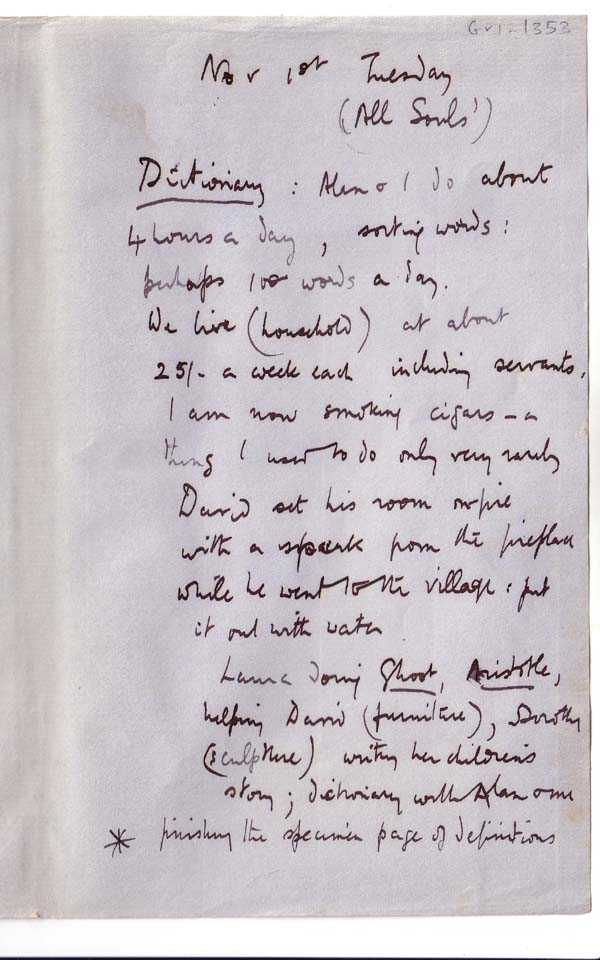 Gr1-1353
Nov 1st Tuesday
(All Souls')
Dictionary : Alan & I do about
4 hours a day, sorting words :
perhaps 100 words a day.
We live (household) at about
25/- a week each including servants.
I am now smoking cigars - a
thing I used to do only very rarely
David set his room on fire
with a spark from the fireplace
while he went to the village : put
it out with water
Laura doing Ghost, Aristotle,
helping David (furniture), Dorothy
(sculpture) writing her children's
story ; dictionary with Alan & me
* finishing the specimen page of definitions